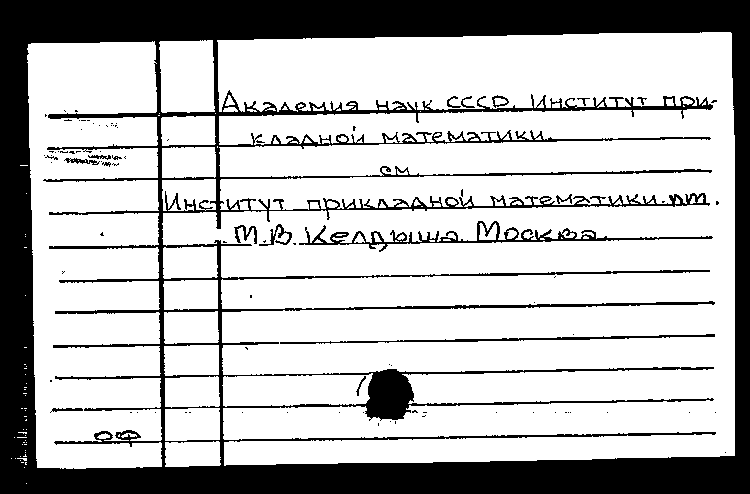 Академия наук СССР. Институт при-
кладной математики.
см.
Институт прикладной математики
М.В. Келдыша. Москва.
ОФ